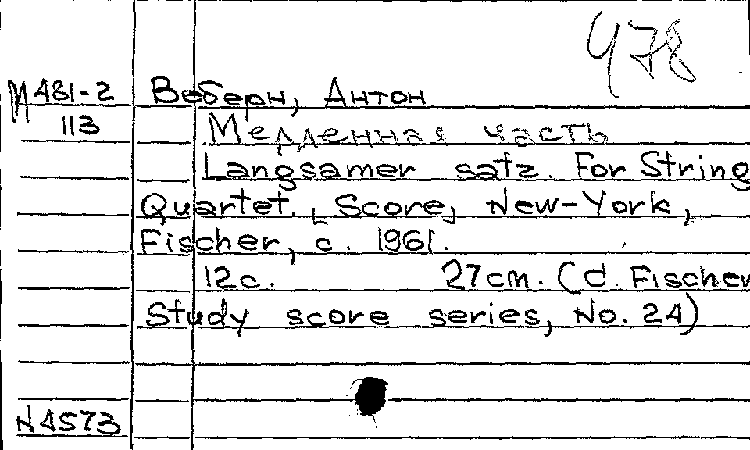 478
М481-2 Веберн, Антон
113 Медленная часть
Langsamer satz. For String
Quartet. [Score] New-York,
Fischer, c. 1961.
12c. 27cm. (d. Fischer
Study score series, No. 24)
И4573